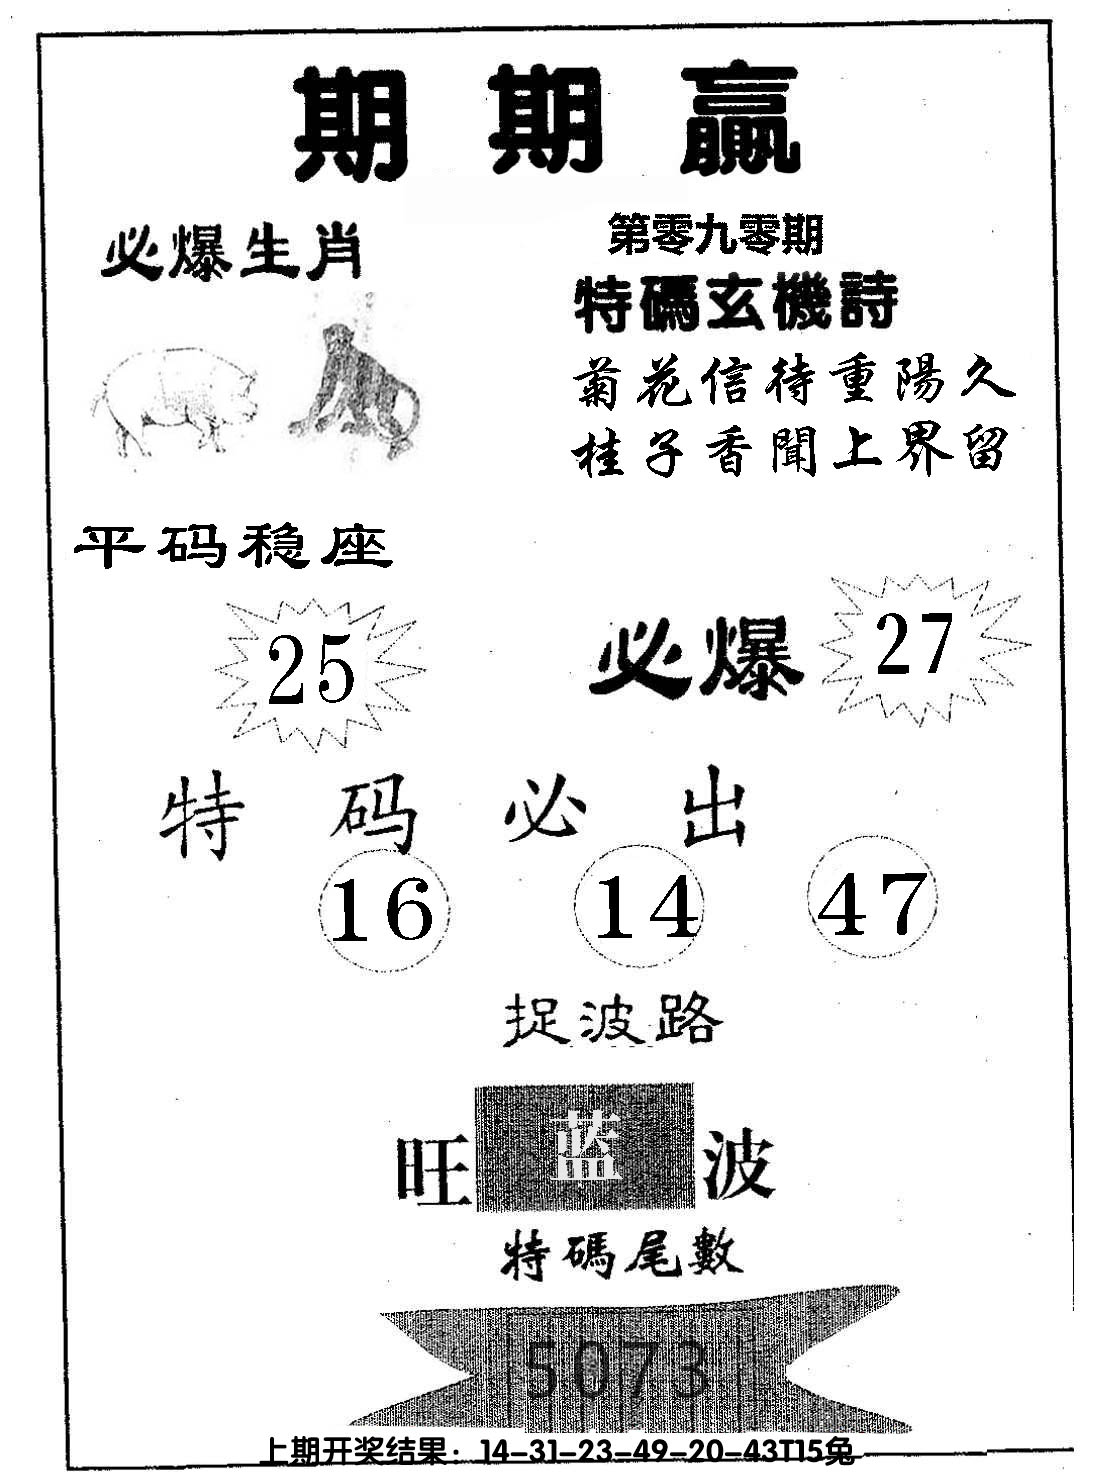 期期赢
必爆生肖
第零九零期
特碼玄機詩
菊花信待重陽久
桂子香聞上界留
平码稳座
25
必爆 27
特码必出
16 14 47
捉波路
旺 蓝 波
特碼尾數
5073
上期开奖结果：14-31-23-49-20-43T15兔